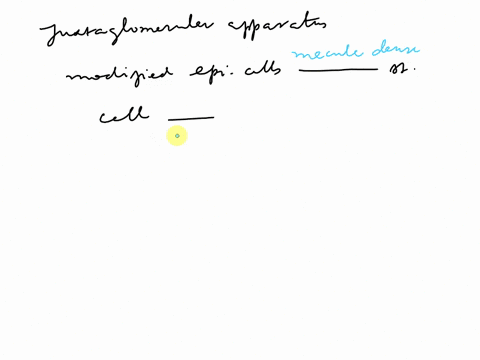 Juxtaglomerular apparatus
macula densa
modified epi. cells ______ st.
cell ____